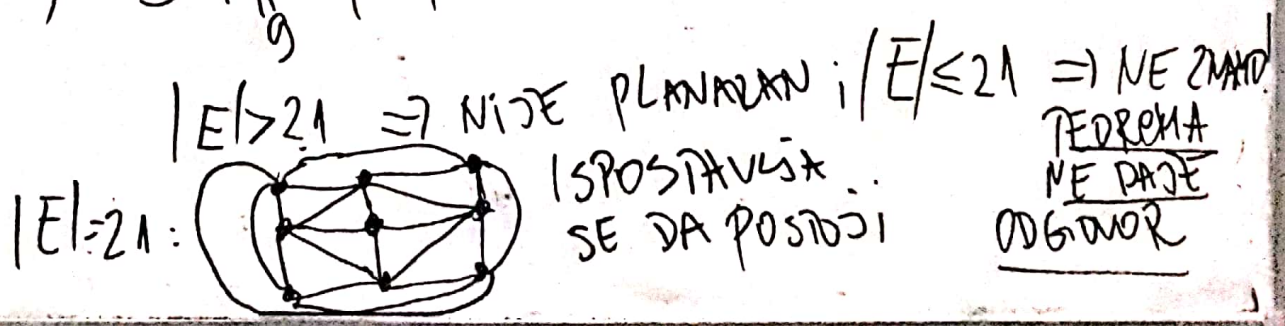 9
|E|>21 => NIJE PLANARAN ; |E|≤21 => NE ZNAMO!
TEOREMA
NE DAJE
ODGOVOR
|E|=21:
ISPOSTAVLJA
SE DA POSTOJI